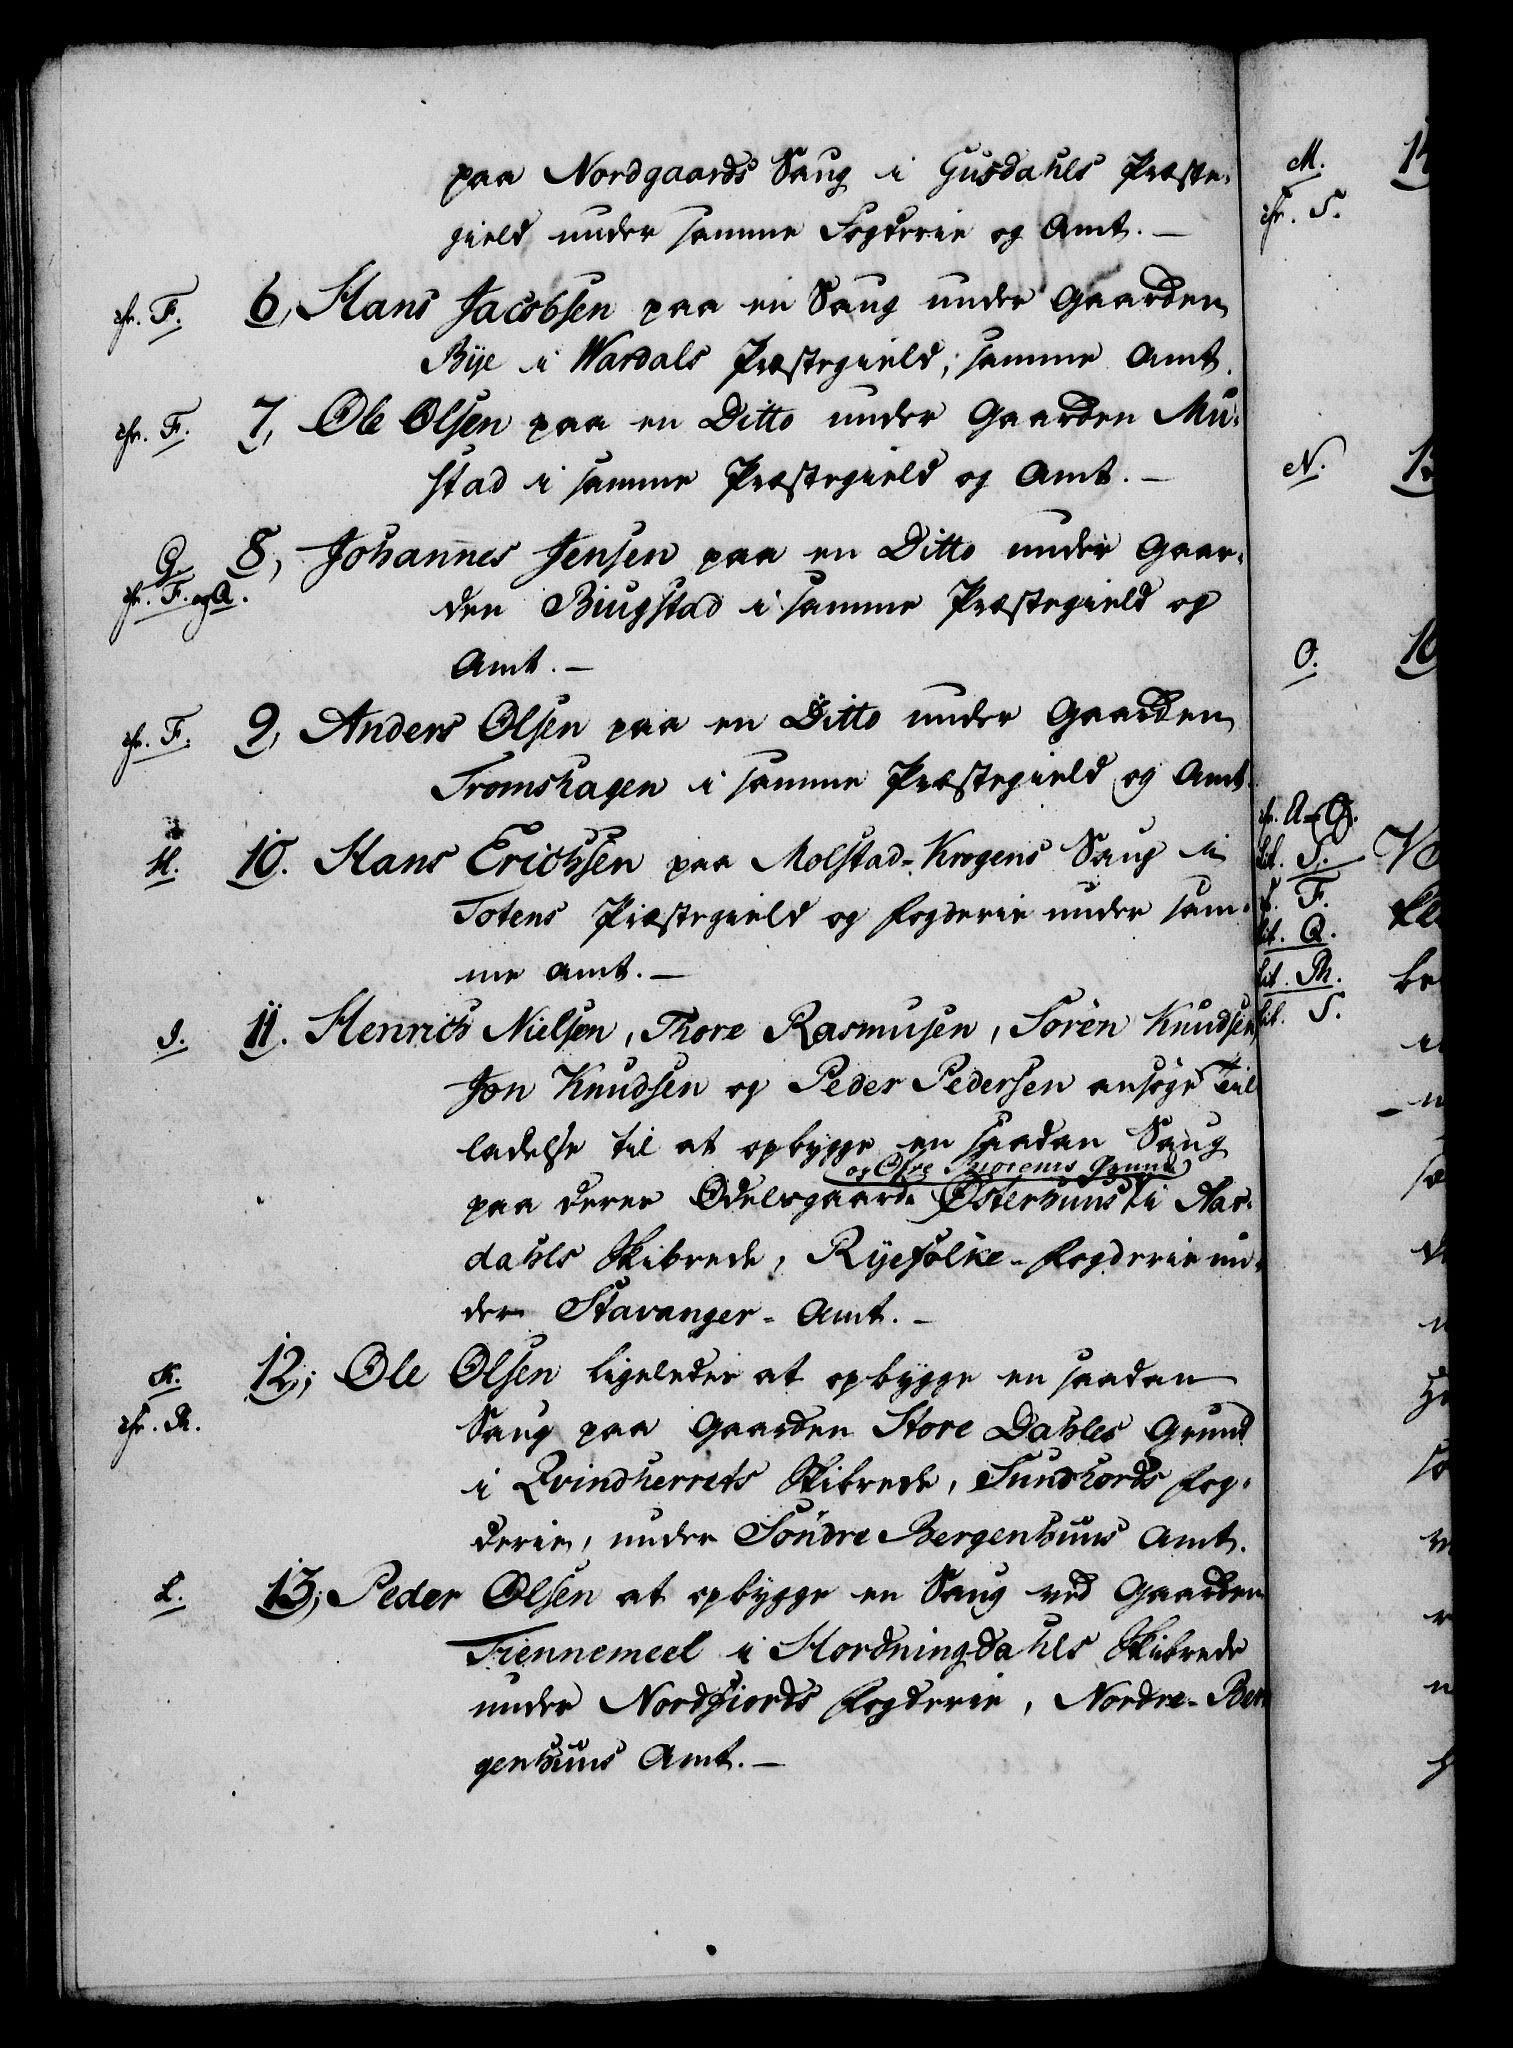 paa Nordgaards Saug i Gusdahls Præste-
gield under samme Fogderie og Amt. —
cfr. F. 6, Hans Jacobsen paa en Saug under Gaarden
Bye i Wardals Præstegield, samme Amt.
cfr. F. 7, Ole Olsen paa en Ditto under Gaarden Mu-
stad i samme Præstegield og Amt. —
G. 8, Johannes Jensen paa en Ditto under Gaar-
cfr. F. og Q. den Biugstad i samme Præstegield og
Amt. —
cfr. F. 9, Anders Olsen paa en Ditto under Gaarden
Tromshagen i samme Præstegield og Amt.
H. 10. Hans Erichsen paa Molstad-Krogens Saug i
Totens Præstegield og Fogderie under sam-
me Amt. —
I. 11. Henrich Nielsen, Thore Rasmusen, Sören Knudsen
Jon Knudsen og Peder Pedersen ansöge Til
ladelse til at opbygge en saadan Saug
og Öfre Grund
paa deres Odelsgaarde Österhuus i Aar-
dahls Skibrede, Ryefölke-Fogderie un-
der Stavanger-Amt. —
K. 12, Ole Olsen ligeledes at opbygge en saadan
cfr. R. Saug paa Gaarden Store Dahles Grund
i Qvindherrets Skibrede, Sundhords Fog-
derie, under Söndre Bergenhuus Amt.
L. 13, Peder Olsen at opbygge en Saug ved Gaarden
Tiennemeel i Hordningdahls Skibrede
under Nordfiords Fogderie, Nordre-Ber
genhuus Amt. —
M.
cfr. S.
N.
O.
cfr. A-G.
Lit. S.
F.
Lit. Q.
Lit. Ph.
Lit. S.